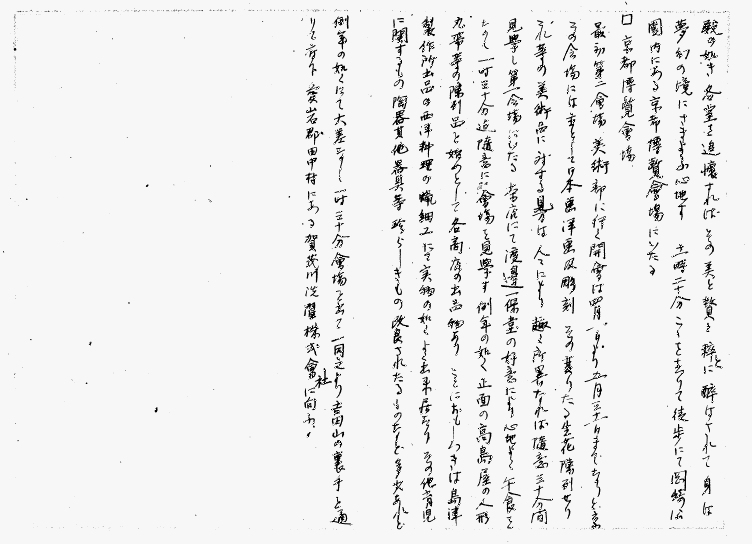 観の如き各堂を追懐すればその美と贅と粋とに酔はされて身は
夢幻の境にさまよふ心地す 十一時二十分こゝを去りて徒歩にて岡崎公
園内にある京都博覧會場にいたる
□ 京都博覧會場
最初第二會場美術部に行く開會は四月一日より五月三十一日までなりと云ふ
その会場には主として日本画洋画及彫刻 その茂りたる生花陳列せり
これ等の美術品に対する見方は人々により趣く所異なれば随意三十分間
見学し第一会場にいたる 本店にて渡邊一保堂の好意により心地よく午食を
なし一時三十分迄随意に會場を見学す例年の如く正面の高島屋の人形
丸帯等の陳列品を始めとして各商店の出品物あり ことにおもしろきは島津
製作所出品の西洋料理の蝋細工にて実物の如くよく出来居たり その他育児
に関するもの陶器其他器具等珍らしきもの改良されたるものなど多少あれど
例年の如くにて大差なし 一時三十分會場を出で一同之より吉田山の裏手を通
りて 愛宕郡田中村にある賀茂川洗濯株式會社に向ふ。